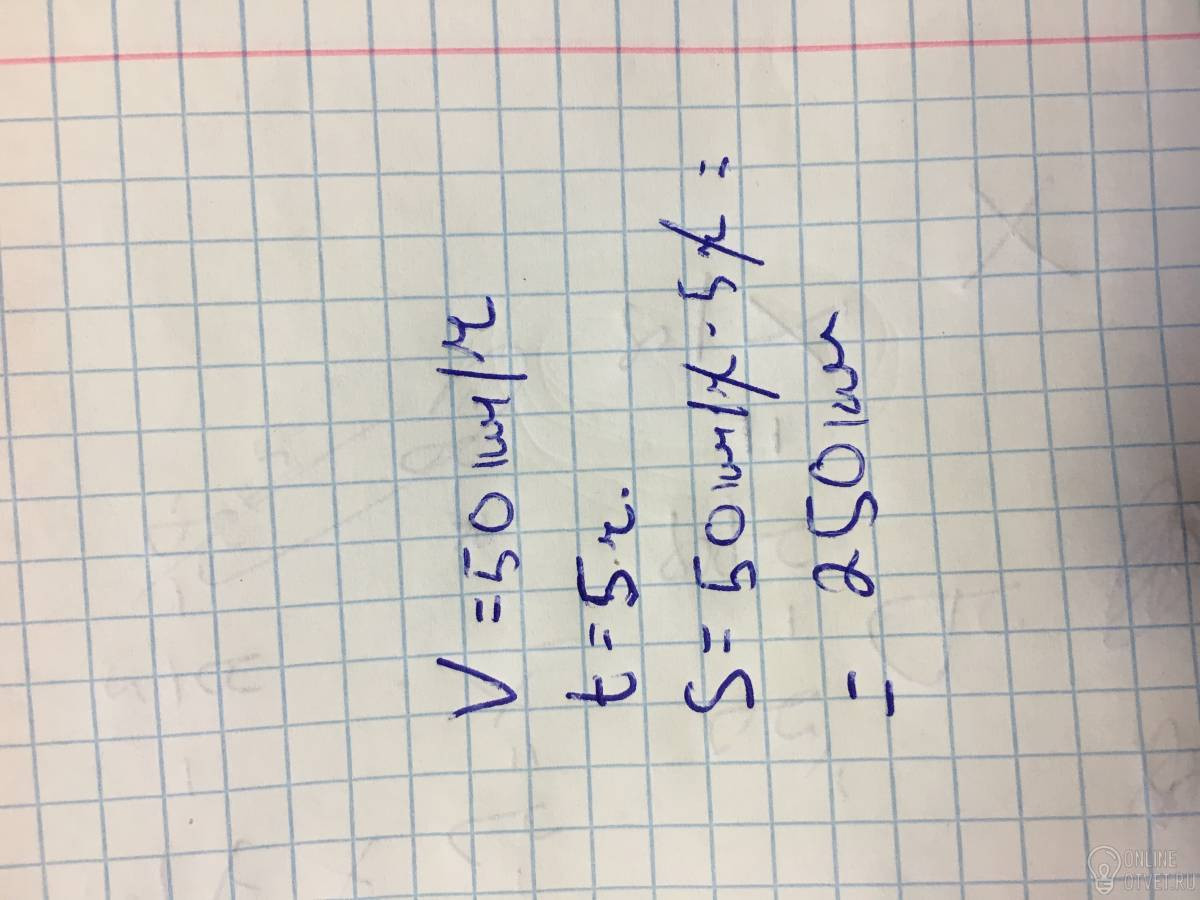 V = 50 км/ч
t = 5 ч.
S = 50 км/ч · 5 ч =
= 250 км
ONLINE
OTVET.RU